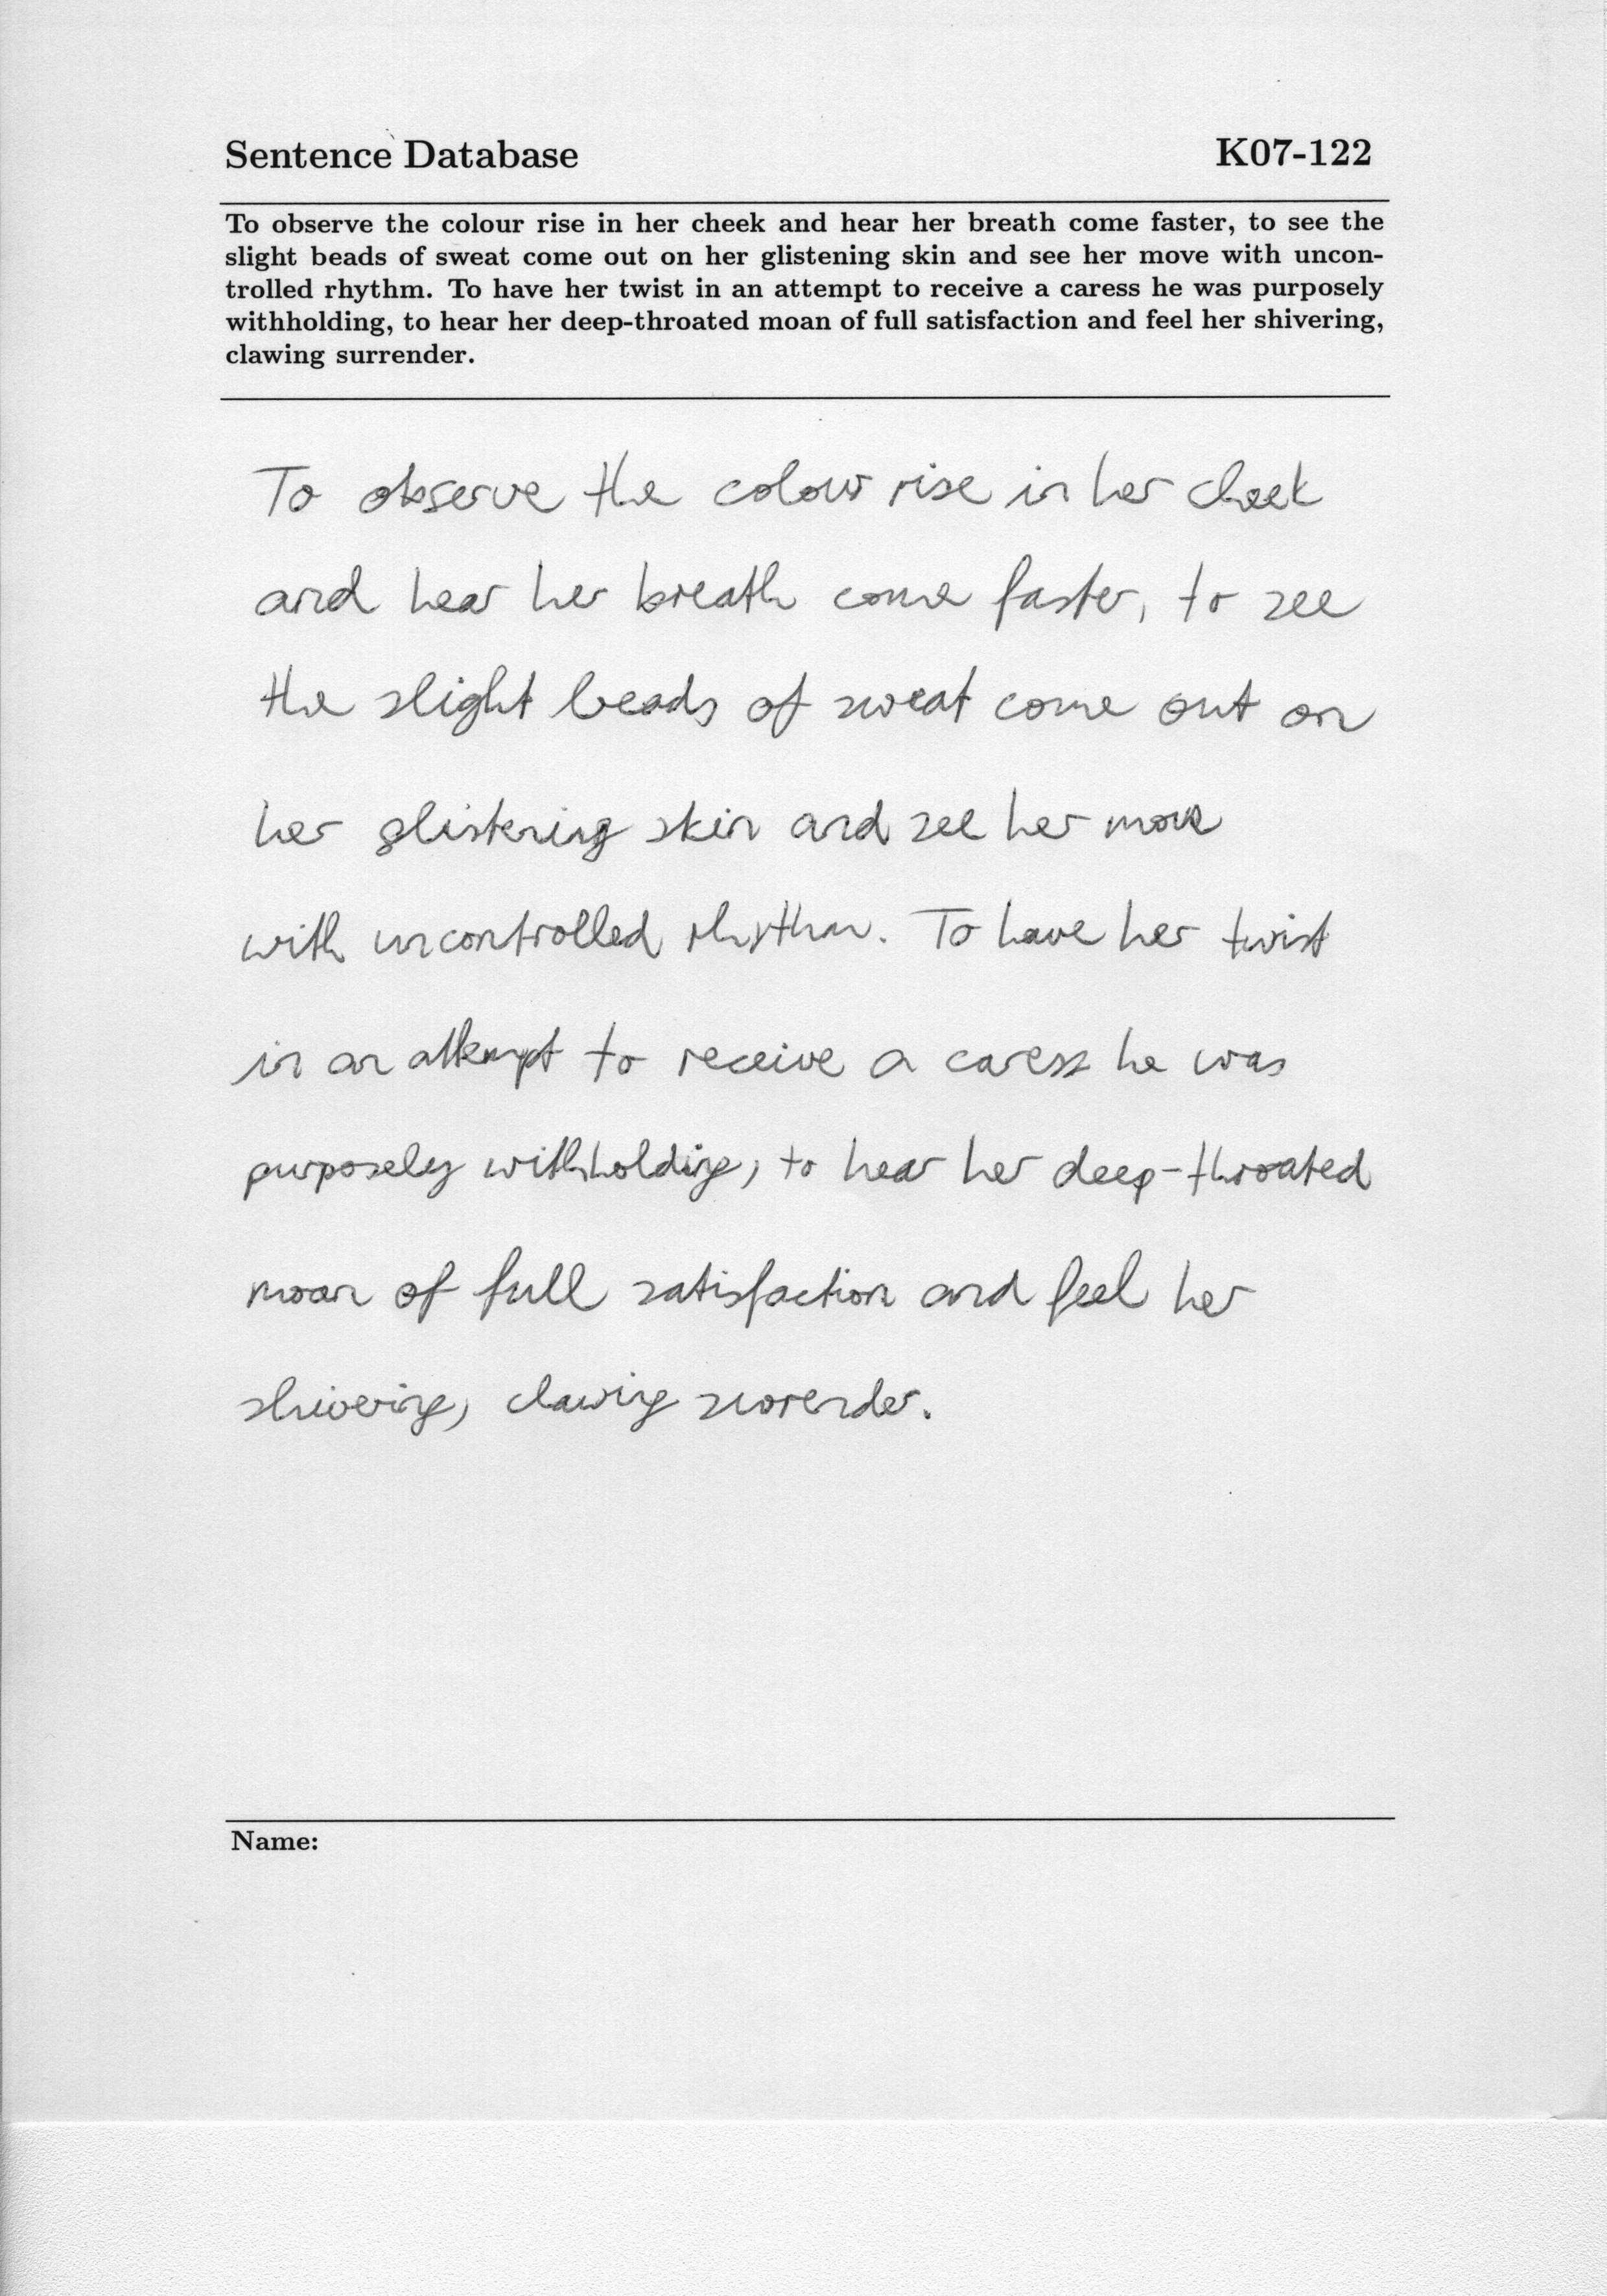 Sentence Database K07-122
To observe the colour rise in her cheek and hear her breath come faster, to see the
slight beads of sweat come out on her glistening skin and see her move with uncon-
trolled rhythm. To have her twist in an attempt to receive a caress he was purposely
withholding, to hear her deep-throated moan of full satisfaction and feel her shivering,
clawing surrender.
To observe the colour rise in her cheek
and hear her breath come faster, to see
the slight beads of sweat come out on
her glistening skin and see her move
with uncontrolled rhythm. To have her twist
in an attempt to receive a caress he was
purposely withholding, to hear her deep-throated
moan of full satisfaction and feel her
shivering, clawing surrender.
Name: